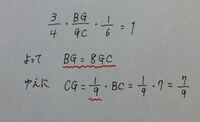 3/4 · BG/GC · 1/6 = 1
よって BG = 8GC
ゆえに CG = 1/9 · BC = 1/9 · 7 = 7/9